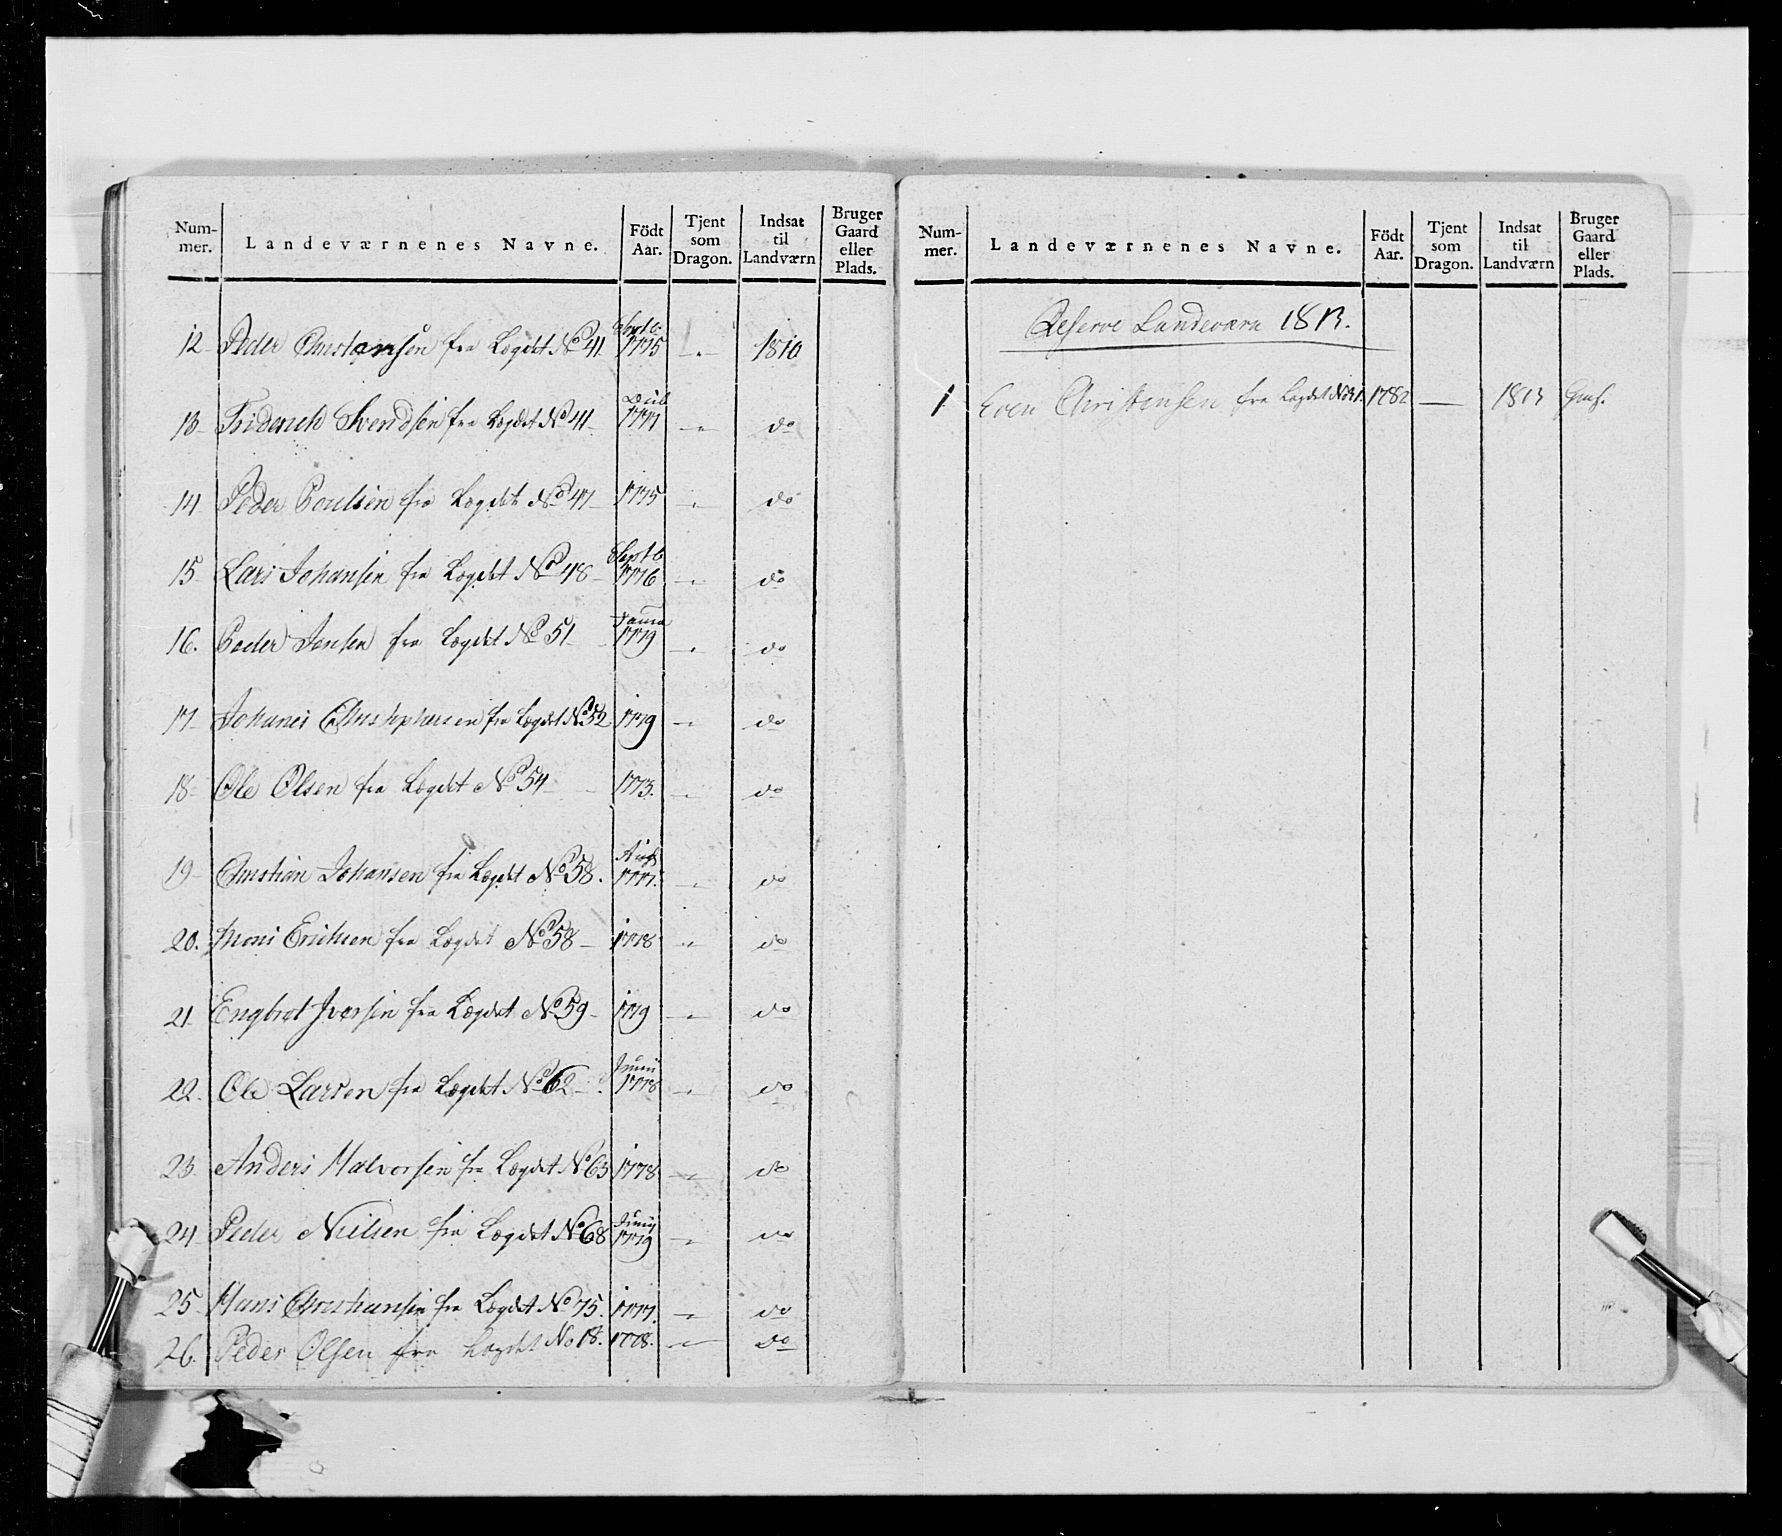 Num-
mer.
Landeværnenes Navne.
Födt
Aar.
Tjent
som
Dragon.
Indsat
til
Landværn
Bruger
Gaard
eller
Plads.
12 Peder Christensen fra Lægdet No 41 Septb. 1775 - 1810
13 Friderich Svendsen fra Lægdet No 41 1777 - do
14 Peder Poulsen fra Lægdet No 47 1775 - do
15 Lars Johansen fra Lægdet No 48 Septb 1776 - do
16. Peder Jensen fra Lægdet No 51 Janua 1779 - do
17 Johanes Christophersen fra Lægdet No 52 1779 - do
18 Ole Olsen fra Lægdet No 54 1773. - do
19 Christian Johansen fra Lægdet No 58. Aug 1777. - do
20. Mons Erichsen fra Lægdet No 58 1778 - do
21 Engbret Iversen fra Lægdet No 59 1779 - do
22. Ole Larsen fra Lægdet No 62 Junii 1778 - do
23. Anders Halvorsen fra Lægdet No 63 1778 - do
24 Peder Nielsen fra Lægdet No 68 Junij 1779 - do
25 Hans Christiansen fra Lægdet No 75. 1777. - do
26. Peder Olsen fra Lægdet No 18. 1778. - do
Num-
mer.
Landeværnenes Navne.
Födt
Aar.
Tjent
som
Dragon.
Indsat
til
Landværn
Bruger
Gaard
eller
Plads.
Reserve Landeværn 1813.
1. Even Christensen fra Lægdet No 31. 1782 — 1813